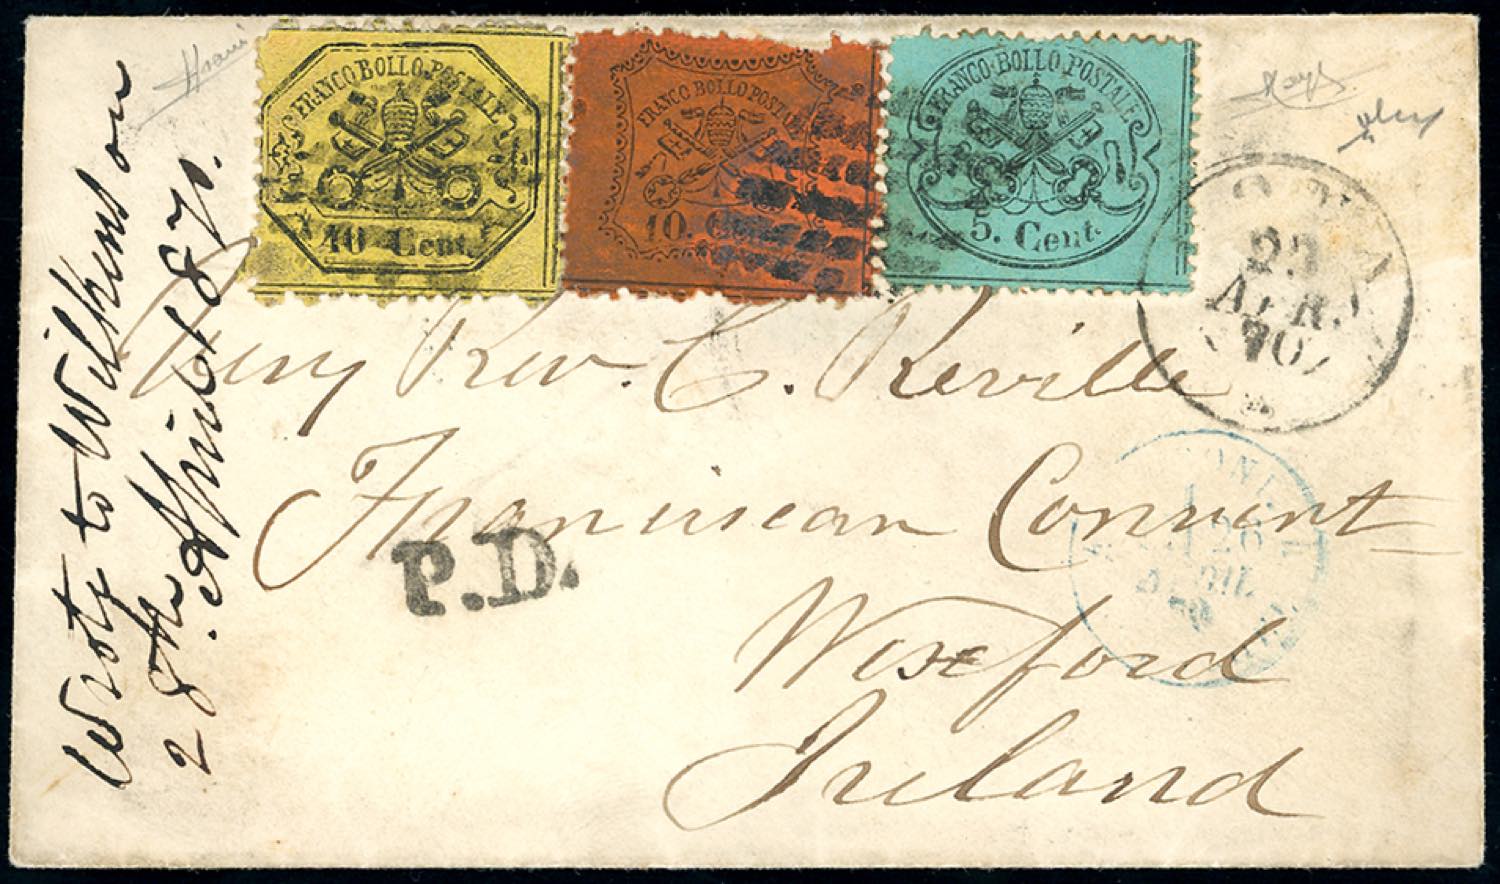 FRANCO BOLLO POSTALE
40 Cent.
FRANCO BOLLO POSTALE
10. Cent.
FRANCO BOLLO POSTALE
5. Cent.
ROMA
23
APR.
70
Very Rev. C. Reville
Franciscan Convent
Wexford
Ireland
P.D.
Wrote to Wilkins on
28th April 1870.